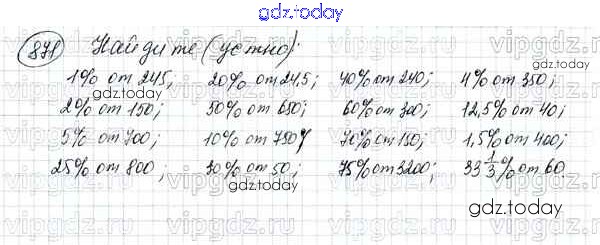 gdz.today
871 Найдите (устно):
1% от 245; 20% от 24,5; 40% от 240; 4% от 350;
2% от 150; 50% от 650; 60% от 300; 12,5% от 40;
5% от 700; 10% от 750; 70% от 150; 1,5% от 400;
25% от 800; 30% от 50; 75% от 3200; 33 1/3 % от 60.
gdz.today